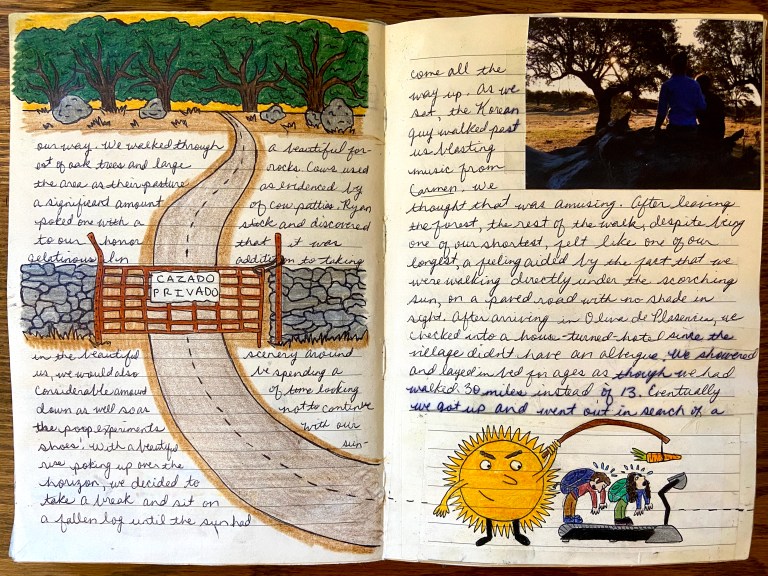 our way. We walked through a beautiful for-
est of oak trees and large rocks. Cows used
the area as their pasture as evidenced by
a significant amount of cow patties. Ryan
poked one with a stick and discovered
to our honor that it was
gelatinous. In addition to taking
CAZADO
PRIVADO
in the beautiful scenery around
us, we would also be spending a
considerable amount of time looking
down as well so as not to continue
the poop experiments with our
shoes. With a beautiful sun-
rise poking up over the
horizon, we decided to
take a break and sit on
a fallen log until the sun had
come all the
way up. As we
sat, the Korean
guy walked past
us blasting
music from
Carmen. We
thought that was amusing. After leaving
the forest, the rest of the walk, despite being
one of our shortest, felt like one of our
longest, a feeling aided by the fact that we
were walking directly under the scorching
sun, on a paved road with no shade in
sight. After arriving in Oliva de Plasencia, we
checked into a house-turned-hotel since the
village didn't have an albergue. We showered
and layed in bed for ages as though we had
walked 30 miles instead of 13. Eventually
we got up and went out in search of a